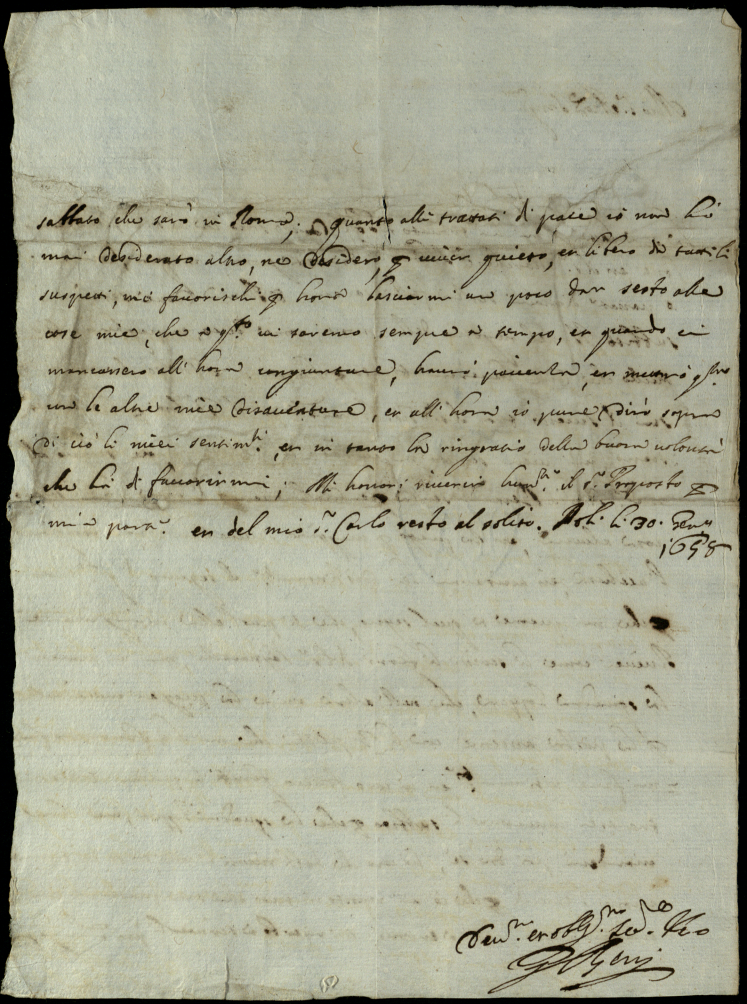 sabbato che sarò in Roma; quanto alli trattati di pace io non hò
mai desiderato altro, ne desidero, q̃ viver quieto, et libero di tutti li
suspetti, mi favorischi p hora lasciarmi un poco dar sesto alle
cose mie, che a q.to vi saremo sempre a tempo, et quando ci
mancassero all'hora congiunture, haurò patienza, et metterò q.to
con le altre mie disaventure, et all'hora io pure dirò sopra
di ciò li miei sentim.ti et in tanto la ringratio della buona volontà
che hà di favorirmi; Mi honori riverire hum.te il S.r Proposto p
mia parte. et del mio S.r Carlo resto al solito. li 30.
1658
Dev.mo et oblig.mo Ser.re